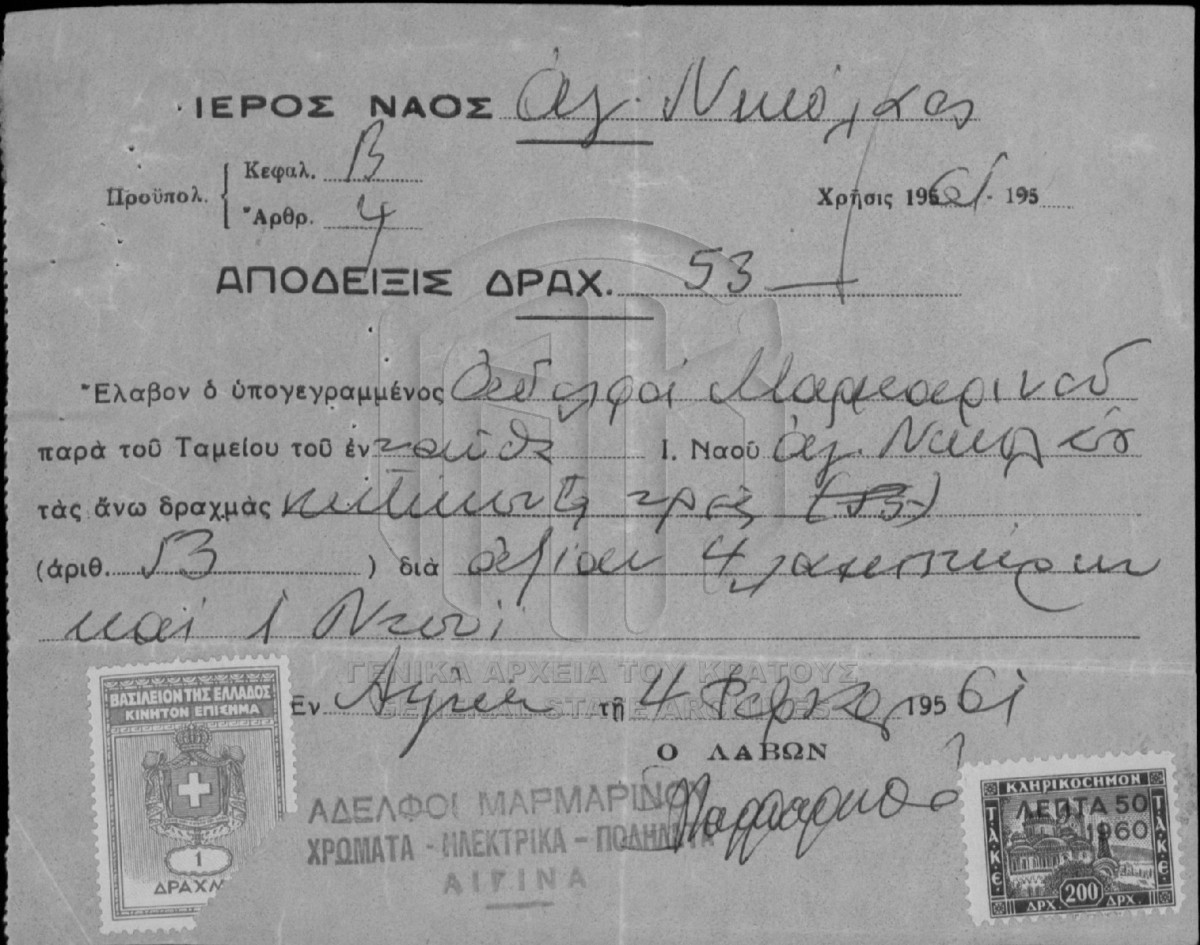 ΙΕΡΟΣ ΝΑΟΣ Ἁγ. Νικόλαος
Προϋπολ. Κεφαλ. Β
Ἄρθρ. 4
Χρῆσις 1961 - 195
ΑΠΟΔΕΙΞΙΣ ΔΡΑΧ. 53
Ἔλαβον ὁ ὑπογεγραμμένος Ἀδελφοί Μαρμαρινοῦ
παρὰ τοῦ Ταμείου τοῦ ἐν Ι. Ναοῦ Ἁγ. Νικολάου
τὰς ἄνω δραχμὰς πεντήκοντα τρεῖς (53)
(ἀριθ. 53 ) διὰ ἀξίαν 4 λαμπτήρων
καί 1
ΒΑΣΙΛΕΙΟΝ ΤΗΣ ΕΛΛΑΔΟΣ
ΚΙΝΗΤΟΝ ΕΠΙΣΗΜΑ
1
ΔΡΑΧΜ
ΓΕΝΙΚΑ ΑΡΧΕΙΑ ΤΟΥ ΚΡΑΤΟΥΣ
GENERAL STATE ARCHIVES
Ἐν Αἰγίνῃ τῇ 4 195 61
Ο ΛΑΒΩΝ
ΑΔΕΛΦΟΙ ΜΑΡΜΑΡΙΝΟΥ
ΧΡΩΜΑΤΑ - ΗΛΕΚΤΡΙΚΑ - ΠΟΔΗΛΑΤΑ
ΑΙΓΙΝΑ
ΚΛΗΡΙΚΟΣΗΜΟΝ
ΛΕΠΤΑ 50
1960
Τ.Α.Κ.Ε. Τ.Α.Κ.Ε.
ΔΡΧ. 200 ΔΡΧ.